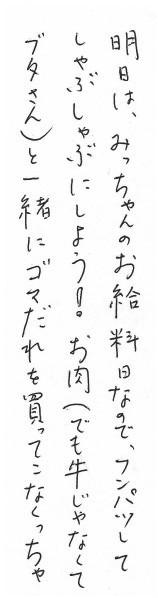 明日は、みっちゃんのお給料日なので、フンパツして
しゃぶしゃぶにしよう!お肉(でも牛じゃなくて
ブタさん)と一緒にゴマだれを買ってこなくっちゃ